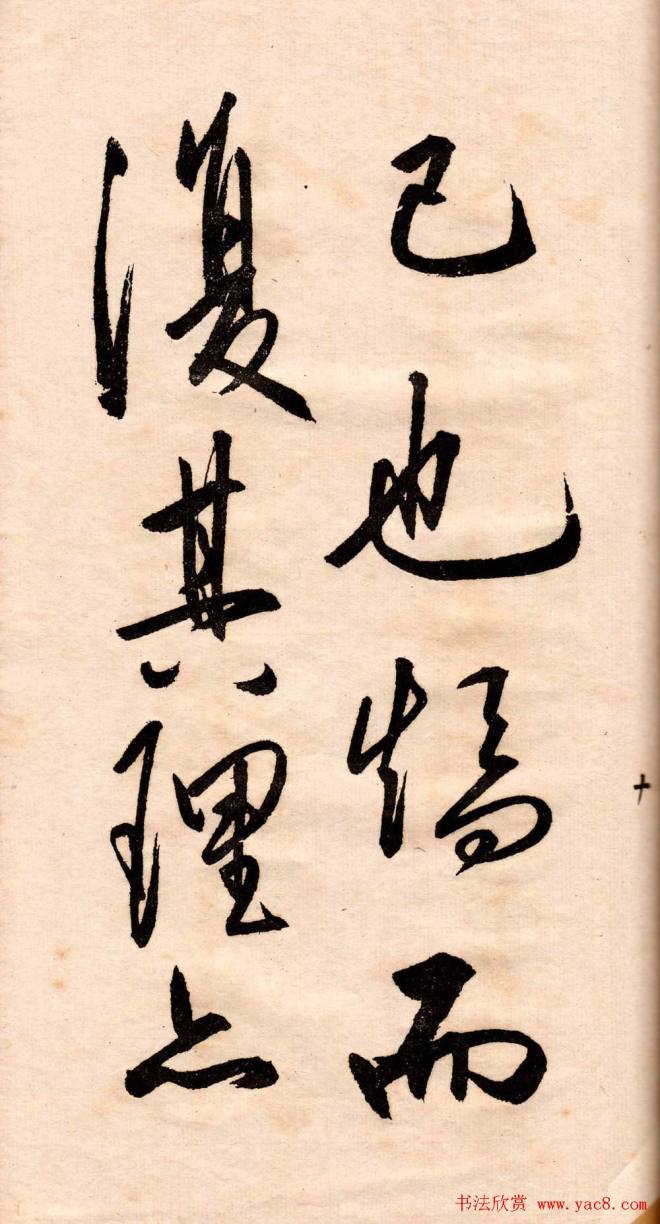 已也而
復其理亦
十
书法欣赏 www.yac8.com